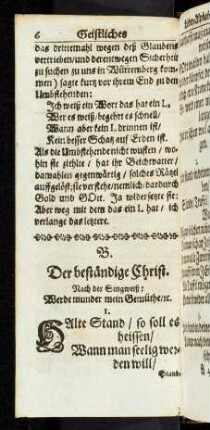 6 Geistliches
das drittemahl wegen deß Glaubens
vertrieben/und derentwegen Sicherheit
zu suchen zu uns in Würtenberg kom-
men) sagte kurtz vor ihrem End zu den
Umbstehenden:
Ich weiß ein Wort das hat ein L.
Wer es weiß/ begehrt es schnell/
Wann aber kein L drinnen ist/
Kein besser Schatz auf Erden ist.
Als die Umbstehende nicht wusten/ wo-
hin sie ziehlte/ hat ihr Beichtvatter/
da wahlen gegenwärtig/ solches Rätzel
auffgelöst; sie verstehe/nemlich/dardurch
Gold und GOtt. Ja widersetzte sie:
Aber weg mit dem das ein L hat/ ich
verlange das letztere.
B.
Der beständige Christ.
Nach der Singweiß:
Werde munder mein Gemüthe/ꝛc.
1.
HAlte Stand/ so soll es
heissen/
Wann man seelig wer-
den will/